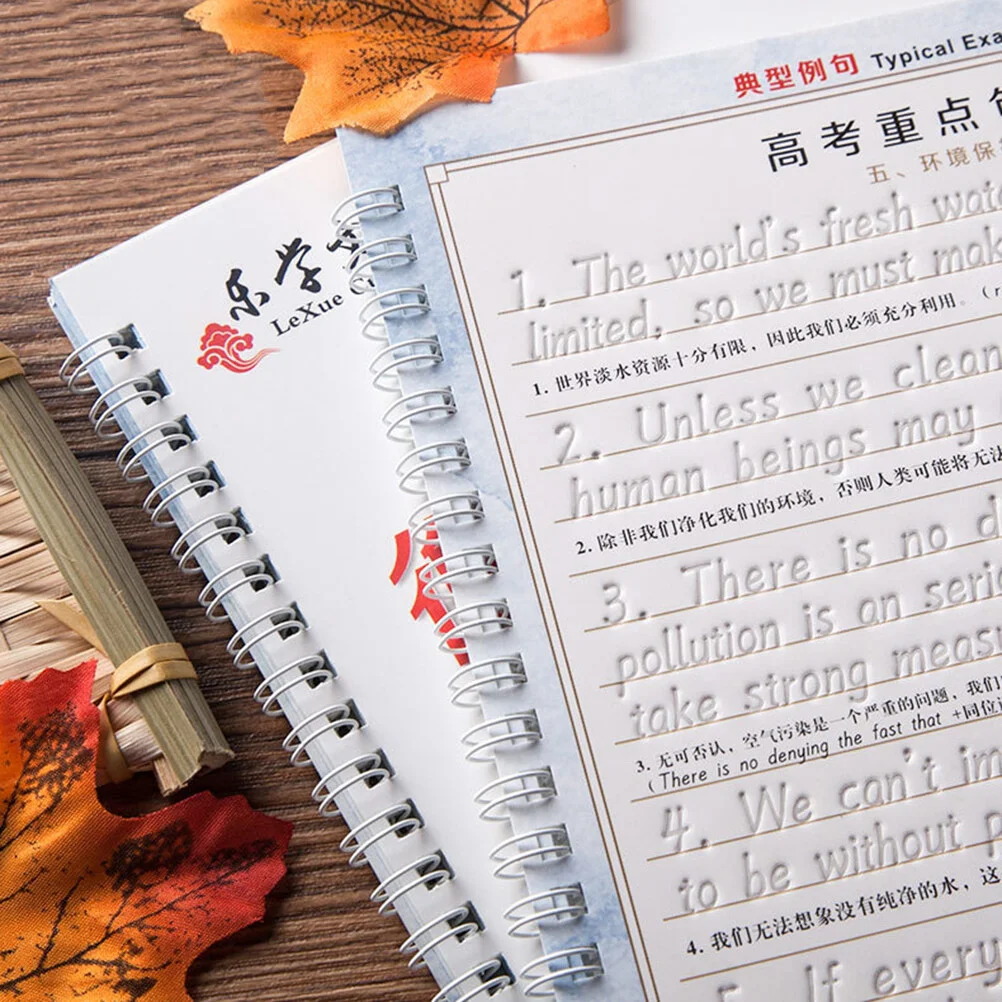 典型例句 Typical
高考重点
五、环境保
乐学
LeXue
1. The world's fresh
limited, so we must
1. 世界淡水资源十分有限，因此我们必须充分利用。
2. Unless we clean
human beings may
2. 除非我们净化我们的环境，否则人类可能将无法
3. There is no
pollution is an
take strong
3. 无可否认，空气污染是一个严重的问题，我们
(There is no denying the fast that +同位
4. We can't
to be without
4. 我们无法想象没有纯净的水，这
5. If